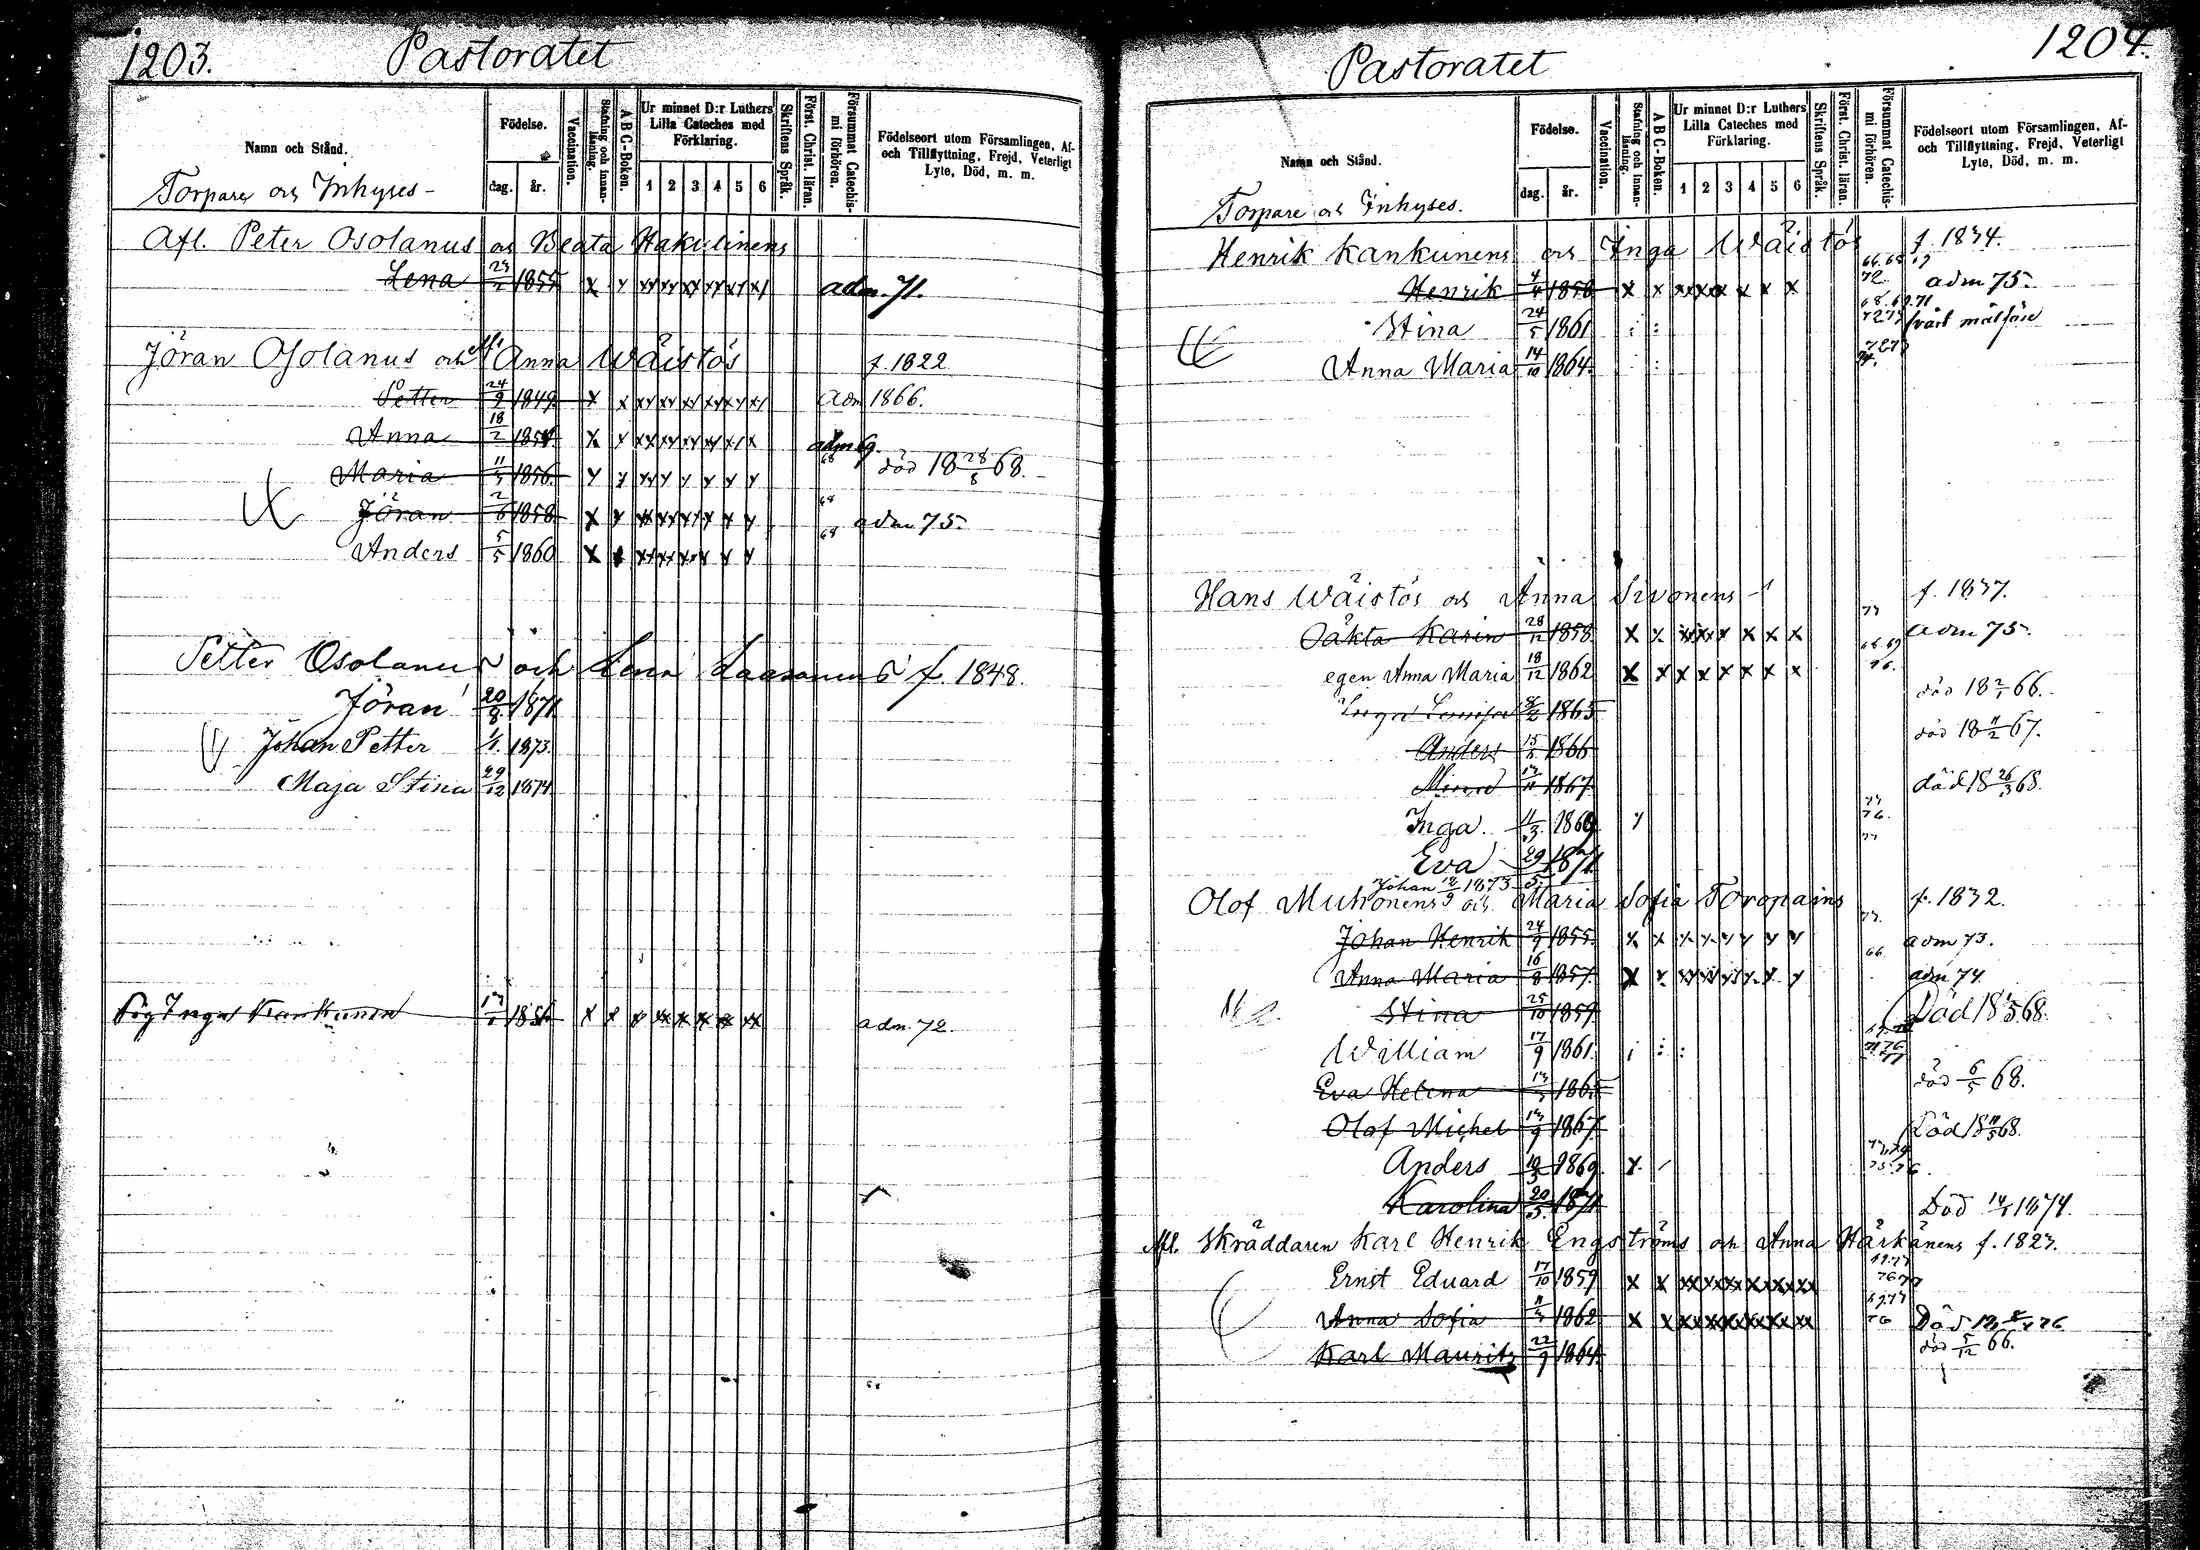 1203.
Pastoratet
Namn och Stånd.
Födelse.
dag. år.
Vaccination.
Stafning och innanläsning.
A B C-Boken.
Ur minnet D:r Luthers Lilla Cateches med Förklaring.
1 2 3 4 5 6
Skriftens Språk.
Först. Christ. läran.
Försummat Catechismi förhören.
Födelseort utom Församlingen, Af- och Tillflyttning, Frejd, Veterligt Lyte, Död, m. m.
Torpare och Inhyses-
Afl. Peter Osolanus och Beata Hakulinens
Lena 1855 adm. 71.
Jöran Osolanus och Anna Wäistös f. 1822
Petter 24/9 1849 adm 1866.
Anna 18/2 1854 adm 69.
Maria 1856 68 död 18 28/8 68.
Jöran 2/6 1858 68 adm 75.
Anders 5/5 1860 68
Petter Osolanus och Lena Laasanens f. 1848.
Jöran 20/8 1871
Johan Petter 1/1 1873.
Maja Stina 29/12 1874
Pig Inga Kankunen 1856 adm. 72.
1204.
Pastoratet
Namn och Stånd.
Födelse.
dag. år.
Vaccination.
Stafning och innanläsning.
A B C-Boken.
Ur minnet D:r Luthers Lilla Cateches med Förklaring.
1 2 3 4 5 6
Skriftens Språk.
Först. Christ. läran.
Försummat Catechismi förhören.
Födelseort utom Församlingen, Af- och Tillflyttning, Frejd, Veterligt Lyte, Död, m. m.
Torpare och Inhyses.
Henrik Kankunens och Inga Wäistös f. 1834.
Henrik 4/4 1858 72 adm 75.
Stina 24/5 1861 svårt målföre
Anna Maria 14/10 1864.
Hans Wäistös och Anna Sivonens f. 1837.
Oäkta Karin 28/12 1858 adm 75.
egen Anna Maria 18/12 1862 76.
Inga Lovisa 1865 död 18 2/1 66.
Anders 1866 död 18 11/2 67.
Minna 1867 död 18 26/3 68.
Inga. 11/3 1869 76.
Eva 29/5 1871
Johan 12/9 1873
Olof Muhonens och Maria Sofia Toropains f. 1832.
Johan Henrik 24/9 1855. adm 73.
Anna Maria 16/8 1857. 66 adm 74.
Stina 25/10 1859 Död 18 1/5 68.
William 17/9 1861.
Eva Helena 1865 död 6/5 68.
Olof Michel 13/9 1867. Död 18 11/5 68.
Anders 1869. 75.76
Karolina 20/5 1871 Död 1874.
Afl. Skräddaren Karl Henrik Engströms och Anna Härkänens f. 1823.
Ernst Eduard 17/10 1859
Anna Sofia 1862 76 Död
Karl Mauritz 22/9 1864. död 5/12 66.